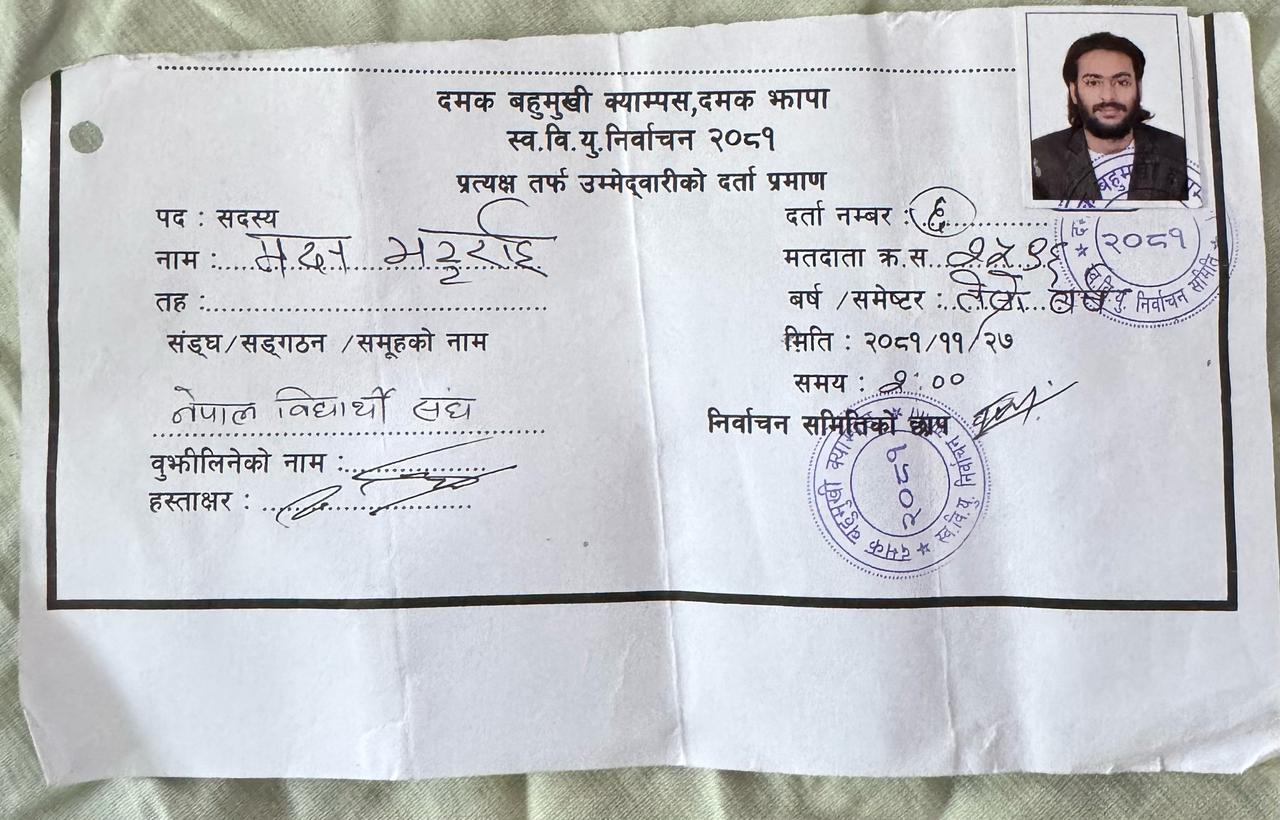 दमक बहुमुखी क्याम्पस,दमक झापा
स्व.वि.यु.निर्वाचन २०८१
प्रत्यक्ष तर्फ उम्मेद्वारीको दर्ता प्रमाण
पद : सदस्य
नाम : भट्टराई
तह :
संङ्घ/सङ्गठन /समूहको नाम
नेपाल विद्यार्थी संघ
वुझीलिनेको नाम :
हस्ताक्षर :
दर्ता नम्बर : ६
मतदाता क्र.स.
बर्ष /समेष्टर :
मिति : २०८१/११/२७
समय : :००
निर्वाचन समितिको छाप
दमक बहुमुखी क्या
स्व.वि.यु. निर्वाचन
२०८१
बहुमुखी
स्व.वि.यु. निर्वाचन समिति
२०८१